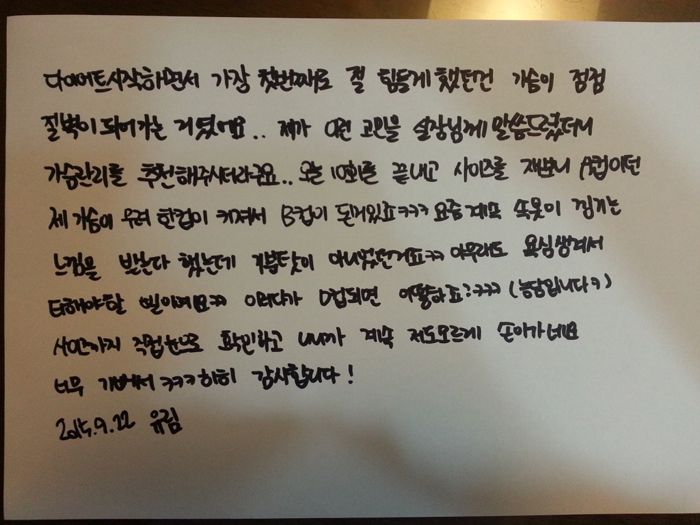 다이어트시작하면서 가장 첫번째로 절 힘들게 했던건 가슴이 점점
절벽이 되어가는 거였어요.. 제가 이런 고민을 실장님께 말씀드렸더니
가슴관리를 추천해주시더라구요.. 오늘 10회를 끝내고 사이즈를 재보니 A컵이던
제 가슴이 무려 한컵이 커져서 B컵이 된거있죠ㅋㅋㅋ 요즘계속 속옷이 낑기는
느낌을 받는다 했는데 기분탓이 아니었던거죠ㅋㅋ 아무래도 욕심생겨서
더해야할 삘이에요ㅋㅋ 이러다가 D컵되면 어떻하죠?ㅋㅋㅋ (농담입니다ㅋ)
사진까지 직접눈으로 확인하고 나니까 계속 저도모르게 손이가네요
너무 기뻐서 ㅋㅋㅋ히히 감사합니다!
2015.9.22 유림